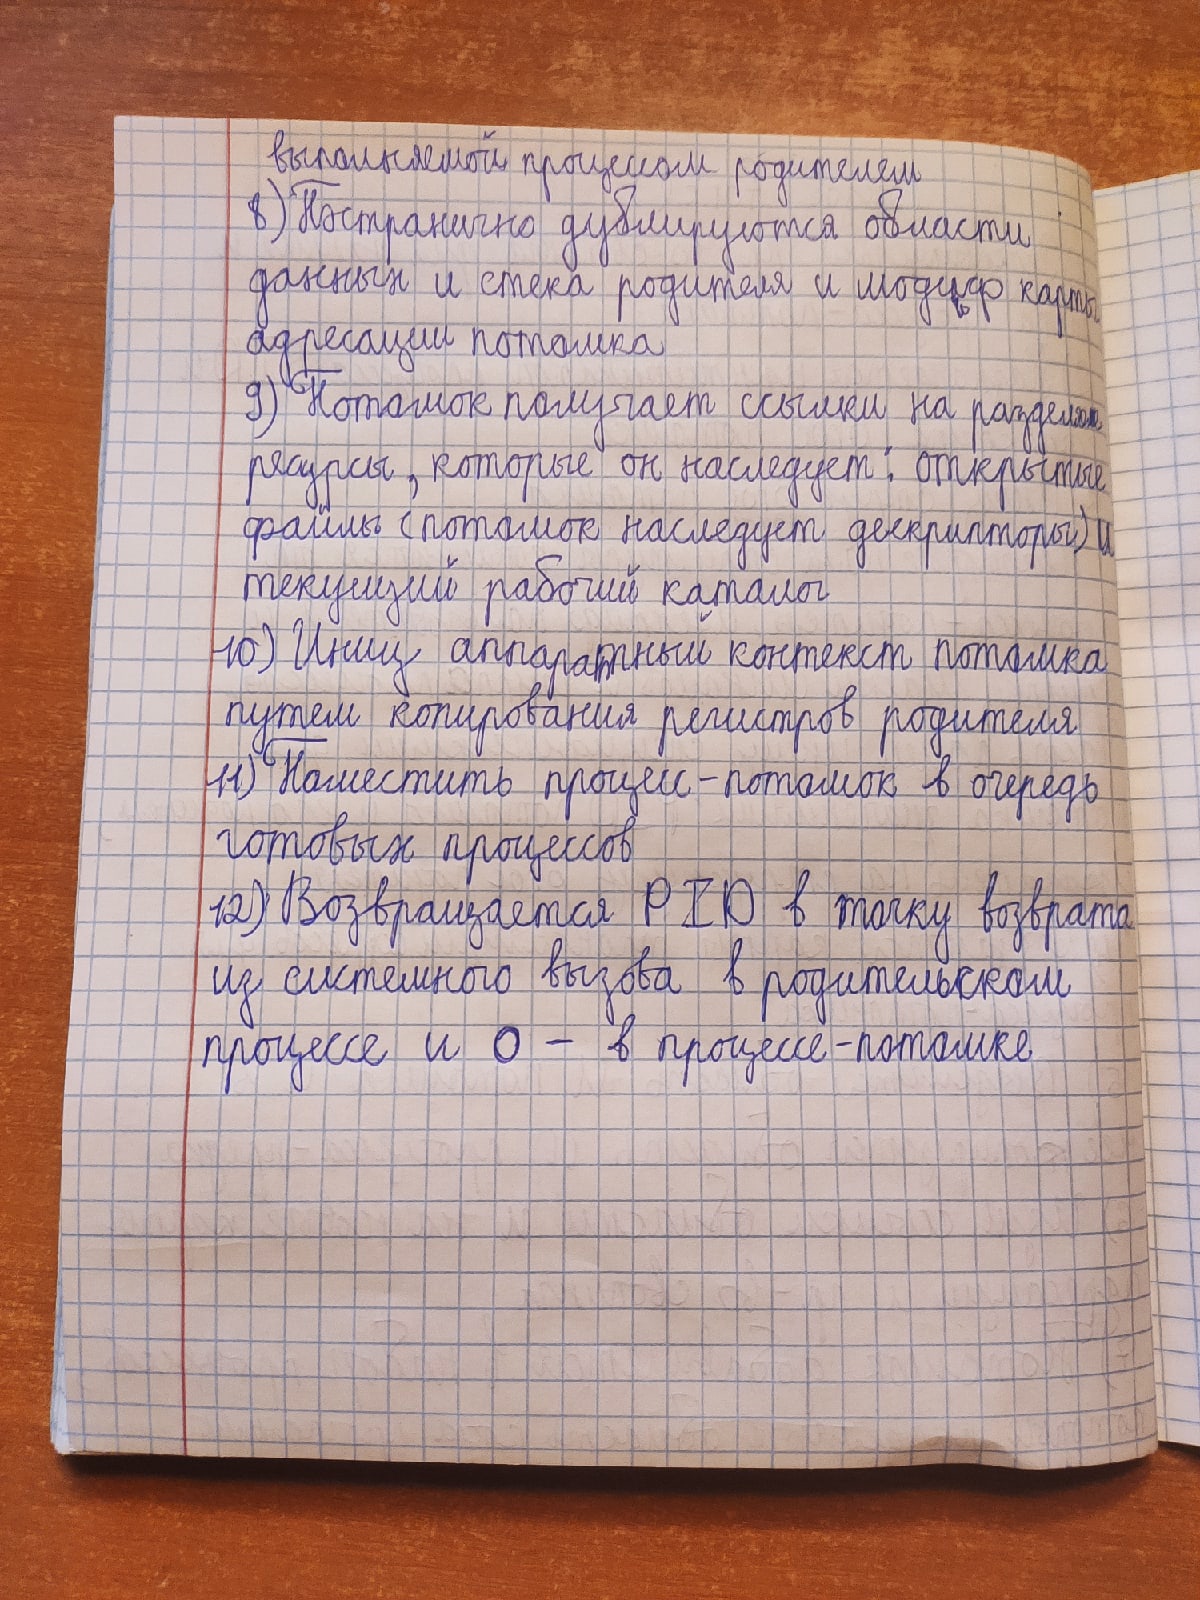 выполняемой процессом родителем
8) Постранично дублируются области
данных и стека родителя и модиф карты
адресации потомка
9) Потомок получает ссылки на разделяем
ресурсы, которые он наследует: открытые
файлы (потомок наследует дескрипторы) и
текущий рабочий каталог
10) Иниц аппаратный контекст потомка
путем копирования регистров родителя
11) Поместить процесс-потомок в очередь
готовых процессов
12) Возвращается PID в точку возврата
из системного вызова в родительском
процессе и 0 - в процессе-потомке